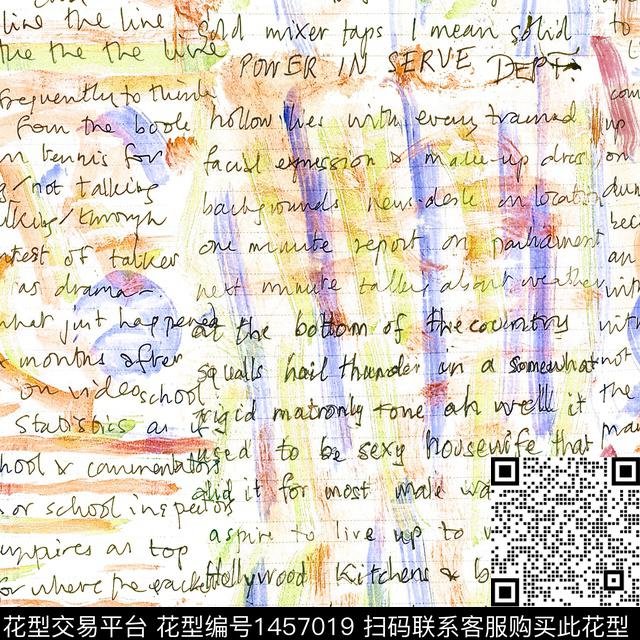 line the line
the the the line
frequently to think
from the book
tennis for
/not talking
/through
of talker
as drama
what just happened
months after
on video school
statistics as
school & commentators
or school inspectors
umpires as top
for where the
Sold mixer taps I mean solid
POWER IN SERVE DEPT
hollow lives with every trained
facial expression & make-up dress
backgrounds news-desk on location
one minute report on parliament
next minute talks about weather
at the bottom of the country
squalls hail thunder in a somewhat
rigid matronly tone ah well it
used to be sexy housewife that
did it for most male
aspire to live up to
Hollywood Kitchens &
花型交易平台 花型编号1457019 扫码联系客服购买此花型